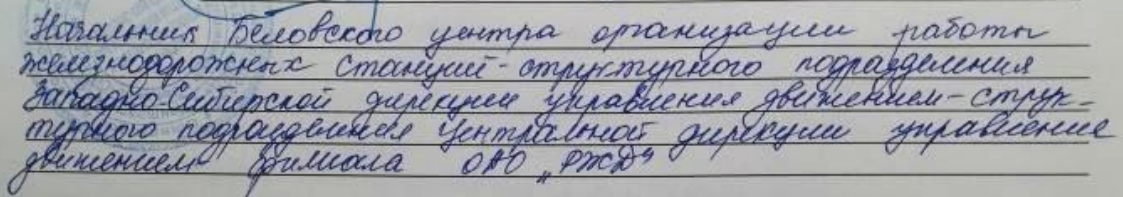 Начальник Беловского центра организации работы
железнодорожных станций - структурного подразделения
Западно-Сибирской дирекции управления движением - струк-
турного подразделения Центральной дирекции управление
движением филиала ОАО „РЖД"